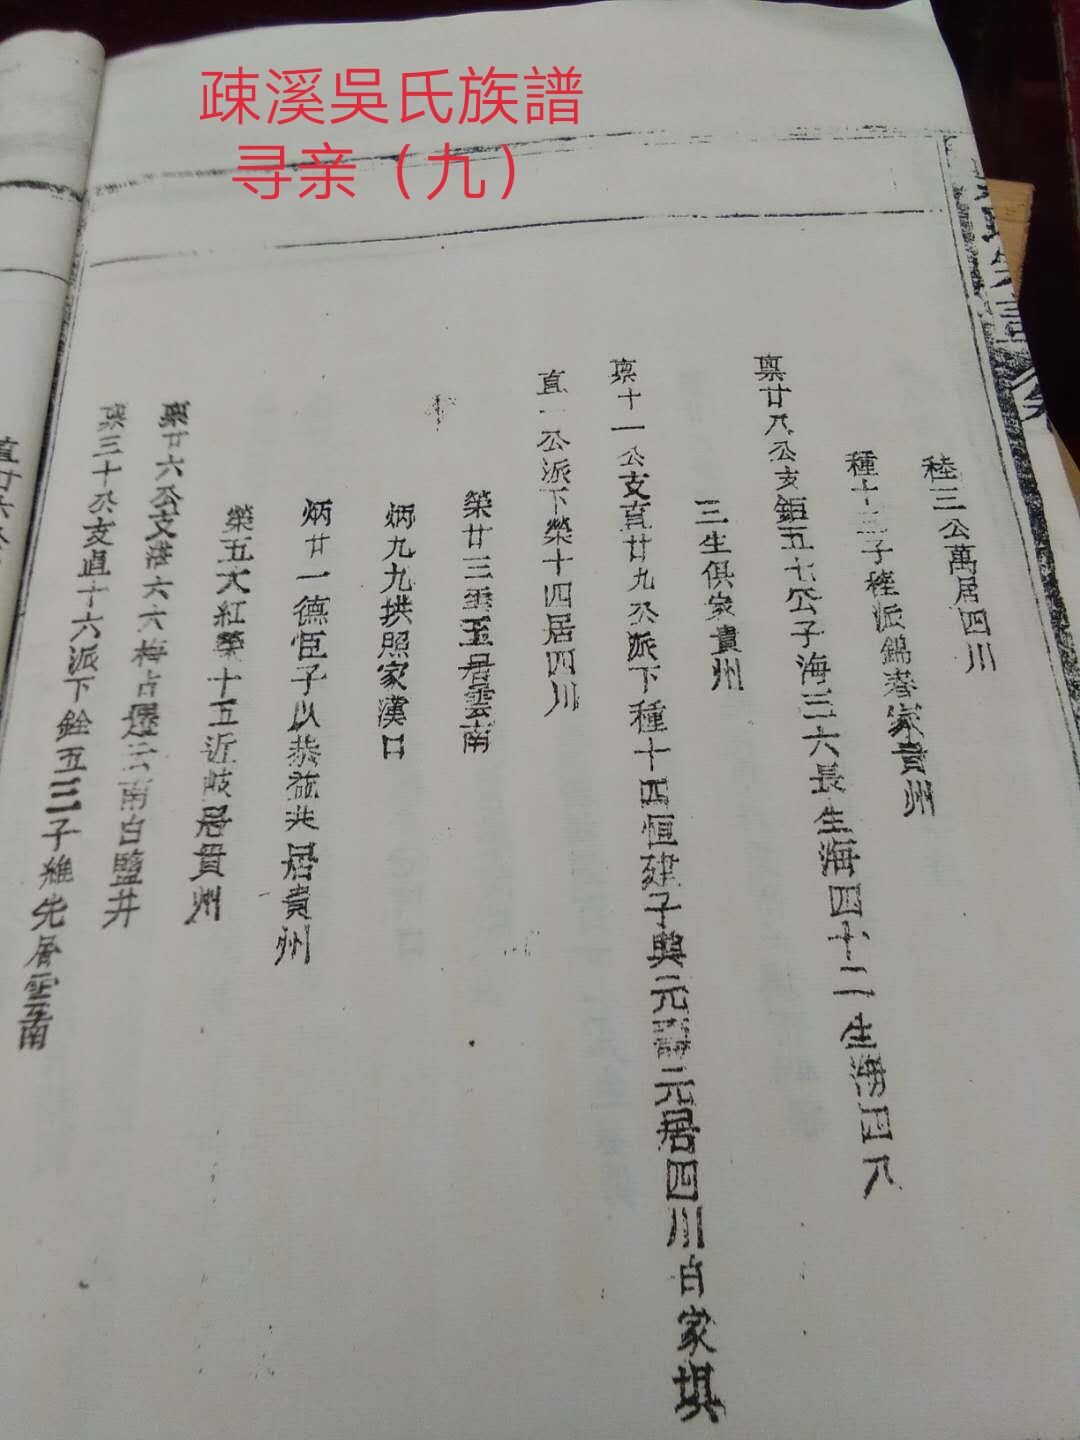 疎溪吳氏族譜
寻亲（九）
稑三公萬居四川
種十三子稑派錦春家貴州
稟廿八公支鉅五七公子海三六長生海四十二生海四八
三生俱家貴州
稟十一公支直廿九公派下種十四恒建子興元壽元居四川白家埧
直一公派下榮十四居四川
榮廿三玉居雲南
炳九九拱照家漢口
炳廿一德恒子以恭益共居貴州
榮五大紅榮十五近岐居貴州
稟廿六公支港六六梅占遷云南白鹽井
稟三十公支直十六派下銓五三子維先居雲南
直廿六公